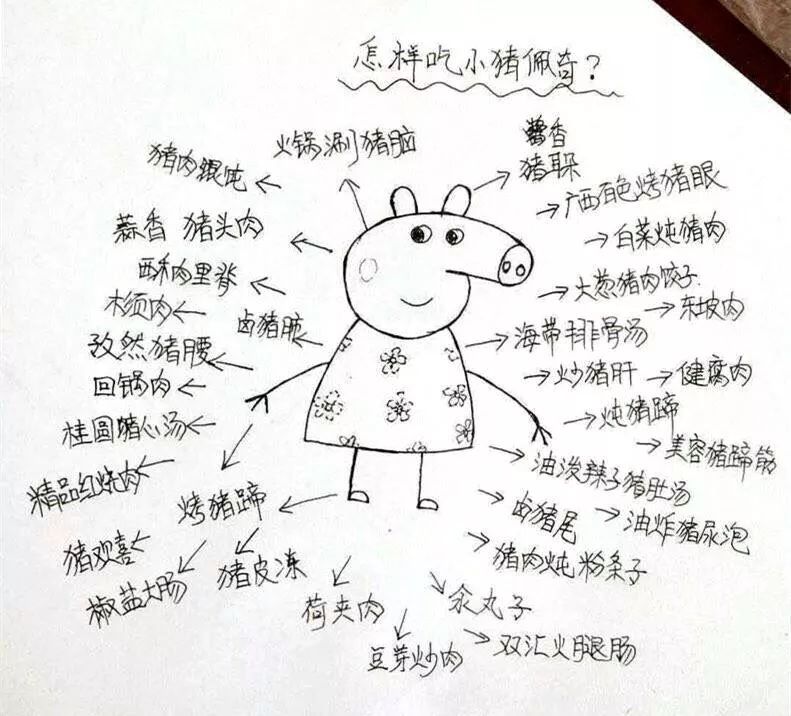 怎样吃小猪佩奇?
火锅涮猪脑
酱香
猪耳朵
猪肉馄饨
广西百色烤猪眼
蒜香 猪头肉
白菜炖猪肉
酥肉里脊
大葱猪肉饺子
木须肉
东坡肉
卤猪脏
海带排骨汤
孜然猪腰
炒猪肝
健腐肉
回锅肉
炖猪蹄
桂圆猪心汤
美容猪蹄筋
油泼辣子猪肚汤
精品红烧肉
烤猪蹄
卤猪尾
油炸猪尿泡
猪观喜
猪皮冻
猪肉炖粉条子
椒盐大肠
荷夹肉
汆丸子
豆芽炒肉
双汇火腿肠